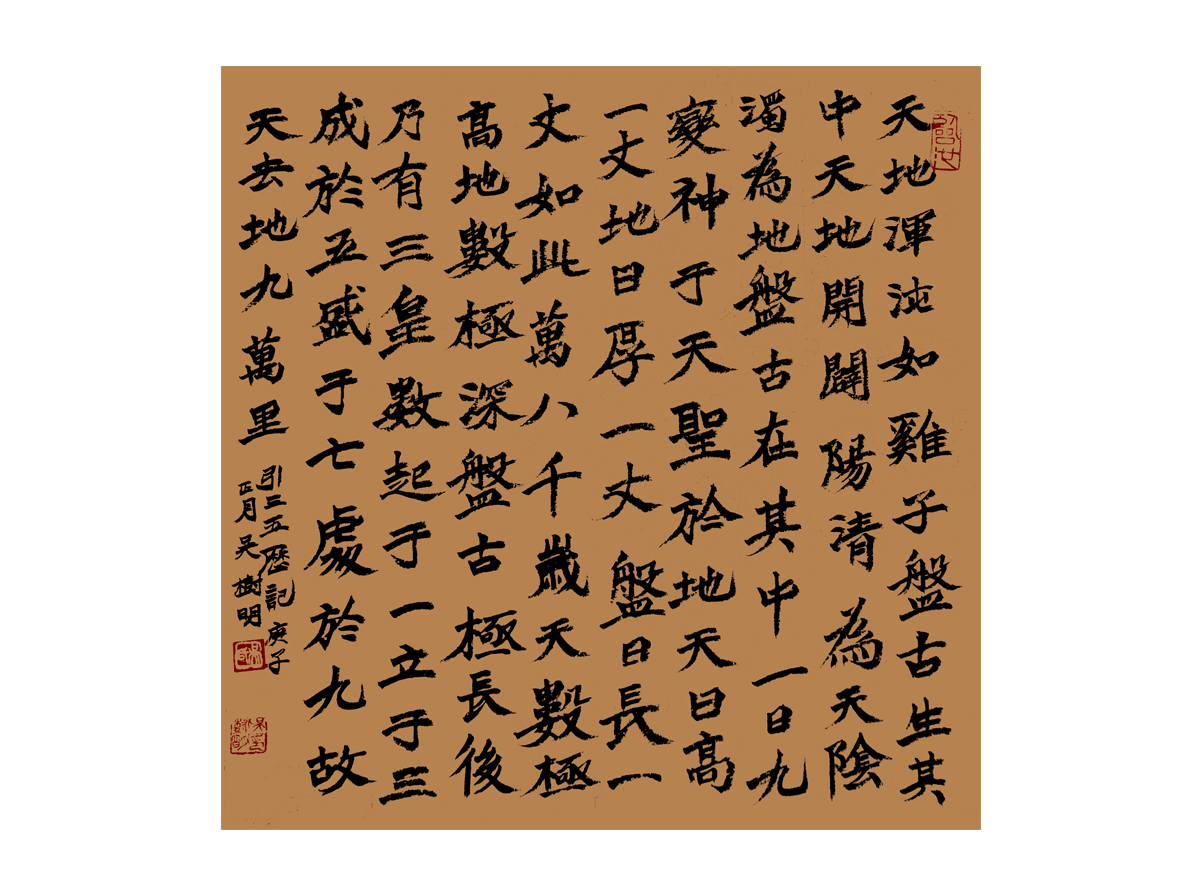 天地渾沌如雞子盤古生其
中天地開闢陽清為天陰
濁為地盤古在其中一日九
變神于天聖於地天日高
一丈地日厚一丈盤日長一
丈如此萬八千歲天數極
高地數極深盤古極長後
乃有三皇數起于一立于三
成於五盛于七處於九故
天去地九萬里
引三五歷記庚子
正月吴樹明